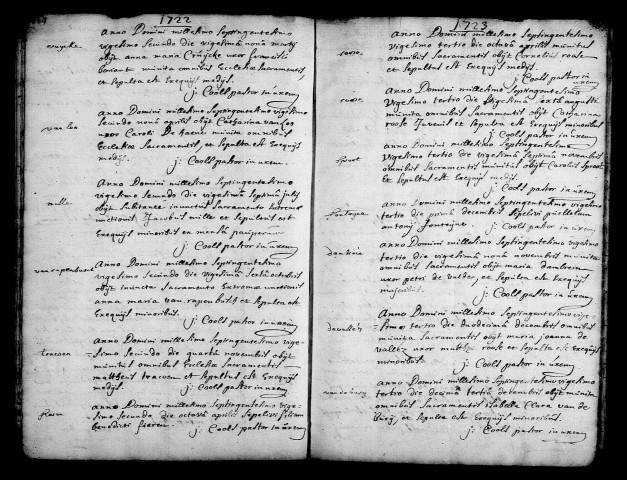 1722
cruycke
Anno Domini millesimo septingentesimo
vigesimo secundo die vigesima nona martij
obijt anna maria Cruijcke uxor
munita omnibus Ecclesiæ Sacramentis
et sepulta est Exequijs medijs.
j: Cools pastor in uxem
van loo
Anno Domini millesimo septingentesimo vigesimo
secundo nona aprilis obijt Catharina van Loo
uxor Caroli De munita omnibus
Ecclesiæ Sacramentis, et sepulta est Exequijs
medijs.
j: Cools pastor in uxem.
mille
Anno Domini millesimo septingentesimo
vigesimo secundo die vigesima septima julij
obijt subitanee Sacramento Extremæ
unctionis Jacobus mille et sepultus est
Exequijs minoribus ex mensa pauperum
j: Cools pastor in uxem
van rapenbusch
Anno Domini millesimo septingentesimo
vigesimo secundo die vigesima sexta octobris
obijt Sacramento Extremæ unctionis
anna maria van et sepulta est
Exequijs minoribus.
j: Cools pastor in uxem
traecen
Anno Domini millesimo septingentesimo vige-
simo secundo die quarta novembris obijt
munitus omnibus Ecclesiæ Sacramentis
mattheus traecen et sepultus est Exequijs
medijs.
j: Cools pastor in uxem
fieren
Anno Domini millesimo septingentesimo vige-
simo secundo die octava aprilis sepelivi filium
benedicti fieren.
j: Cools pastor in uxem
1723
roose
Anno Domini millesimo septingentesimo
vigesimo tertio die octava aprilis munitus
omnibus Sacramentis obijt Cornelius roose
et sepultus est Exequijs medijs.
j: Cools pastor in uxem
roose
Anno Domini millesimo septingentesimo
vigesimo tertio die vigesima sexta augusti
munita omnibus Sacramentis obijt Catharina
roose juvenis et sepulta est Exequijs minoribus
j: Cools pastor in uxem
Anno Domini millesimo septingentesimo
vigesimo tertio die vigesima septima novembris
omnibus Sacramentis obijt Carolus
et sepultus est Exequijs medijs.
j: Cools pastor in uxem
Anno Domini millesimo septingentesimo vigesimo
tertio die prima decembris sepelivi puellulam
antonij j: Cools pastor in uxem
Anno Domini millesimo septingentesimo vigesimo
tertio die vigesima nona novembris munita
omnibus Sacramentis obijt maria
uxor petri de mulder, et sepulta est Exequijs
majoribus.
j: Cools pastor in uxem
Anno Domini millesimo septingentesimo vige-
simo tertio die duodecima decembris omnibus
munita Sacramentis obijt maria joanna de
uxor roose et sepulta est Exequijs
minoribus.
j: Cools pastor in uxem
van de
Anno Domini millesimo septingentesimo vigesimo
tertio die decima tertia decembris obijt munita
omnibus Sacramentis isabella Clara van de
et sepulta est Exequijs minoribus.
j: Cools pastor in uxem